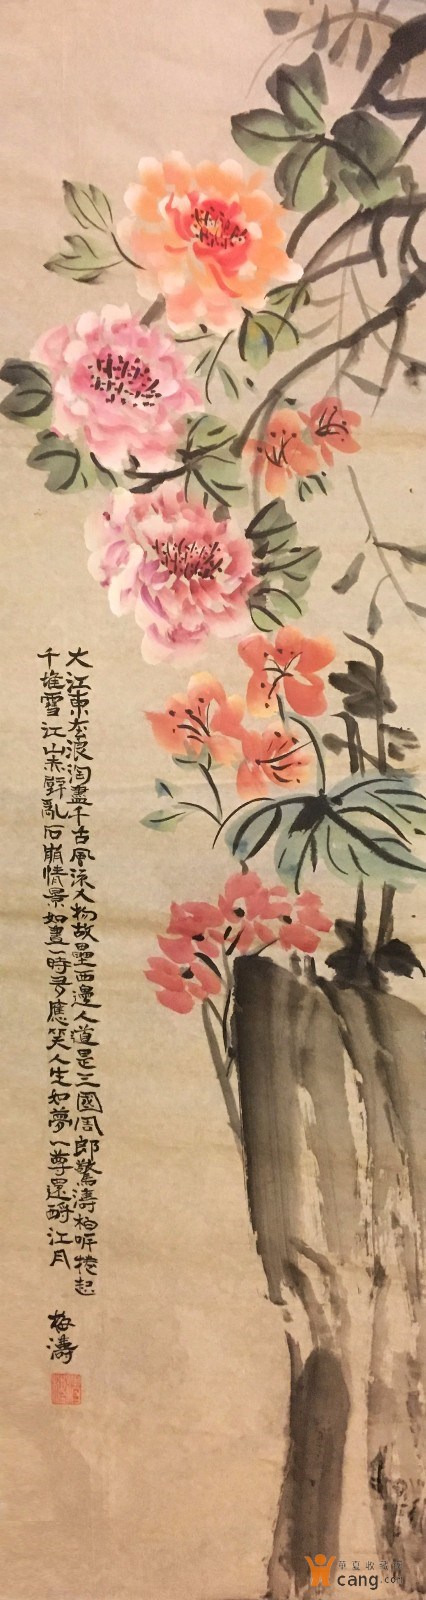 大江東去浪淘盡千古風流人物故壘西邊人道是三國周郎驚濤拍岸捲起
千堆雪江山赤壁亂石崩情景如畫一時多應笑人生如夢一尊還酹江月
梅濤
華夏收藏
cang.com